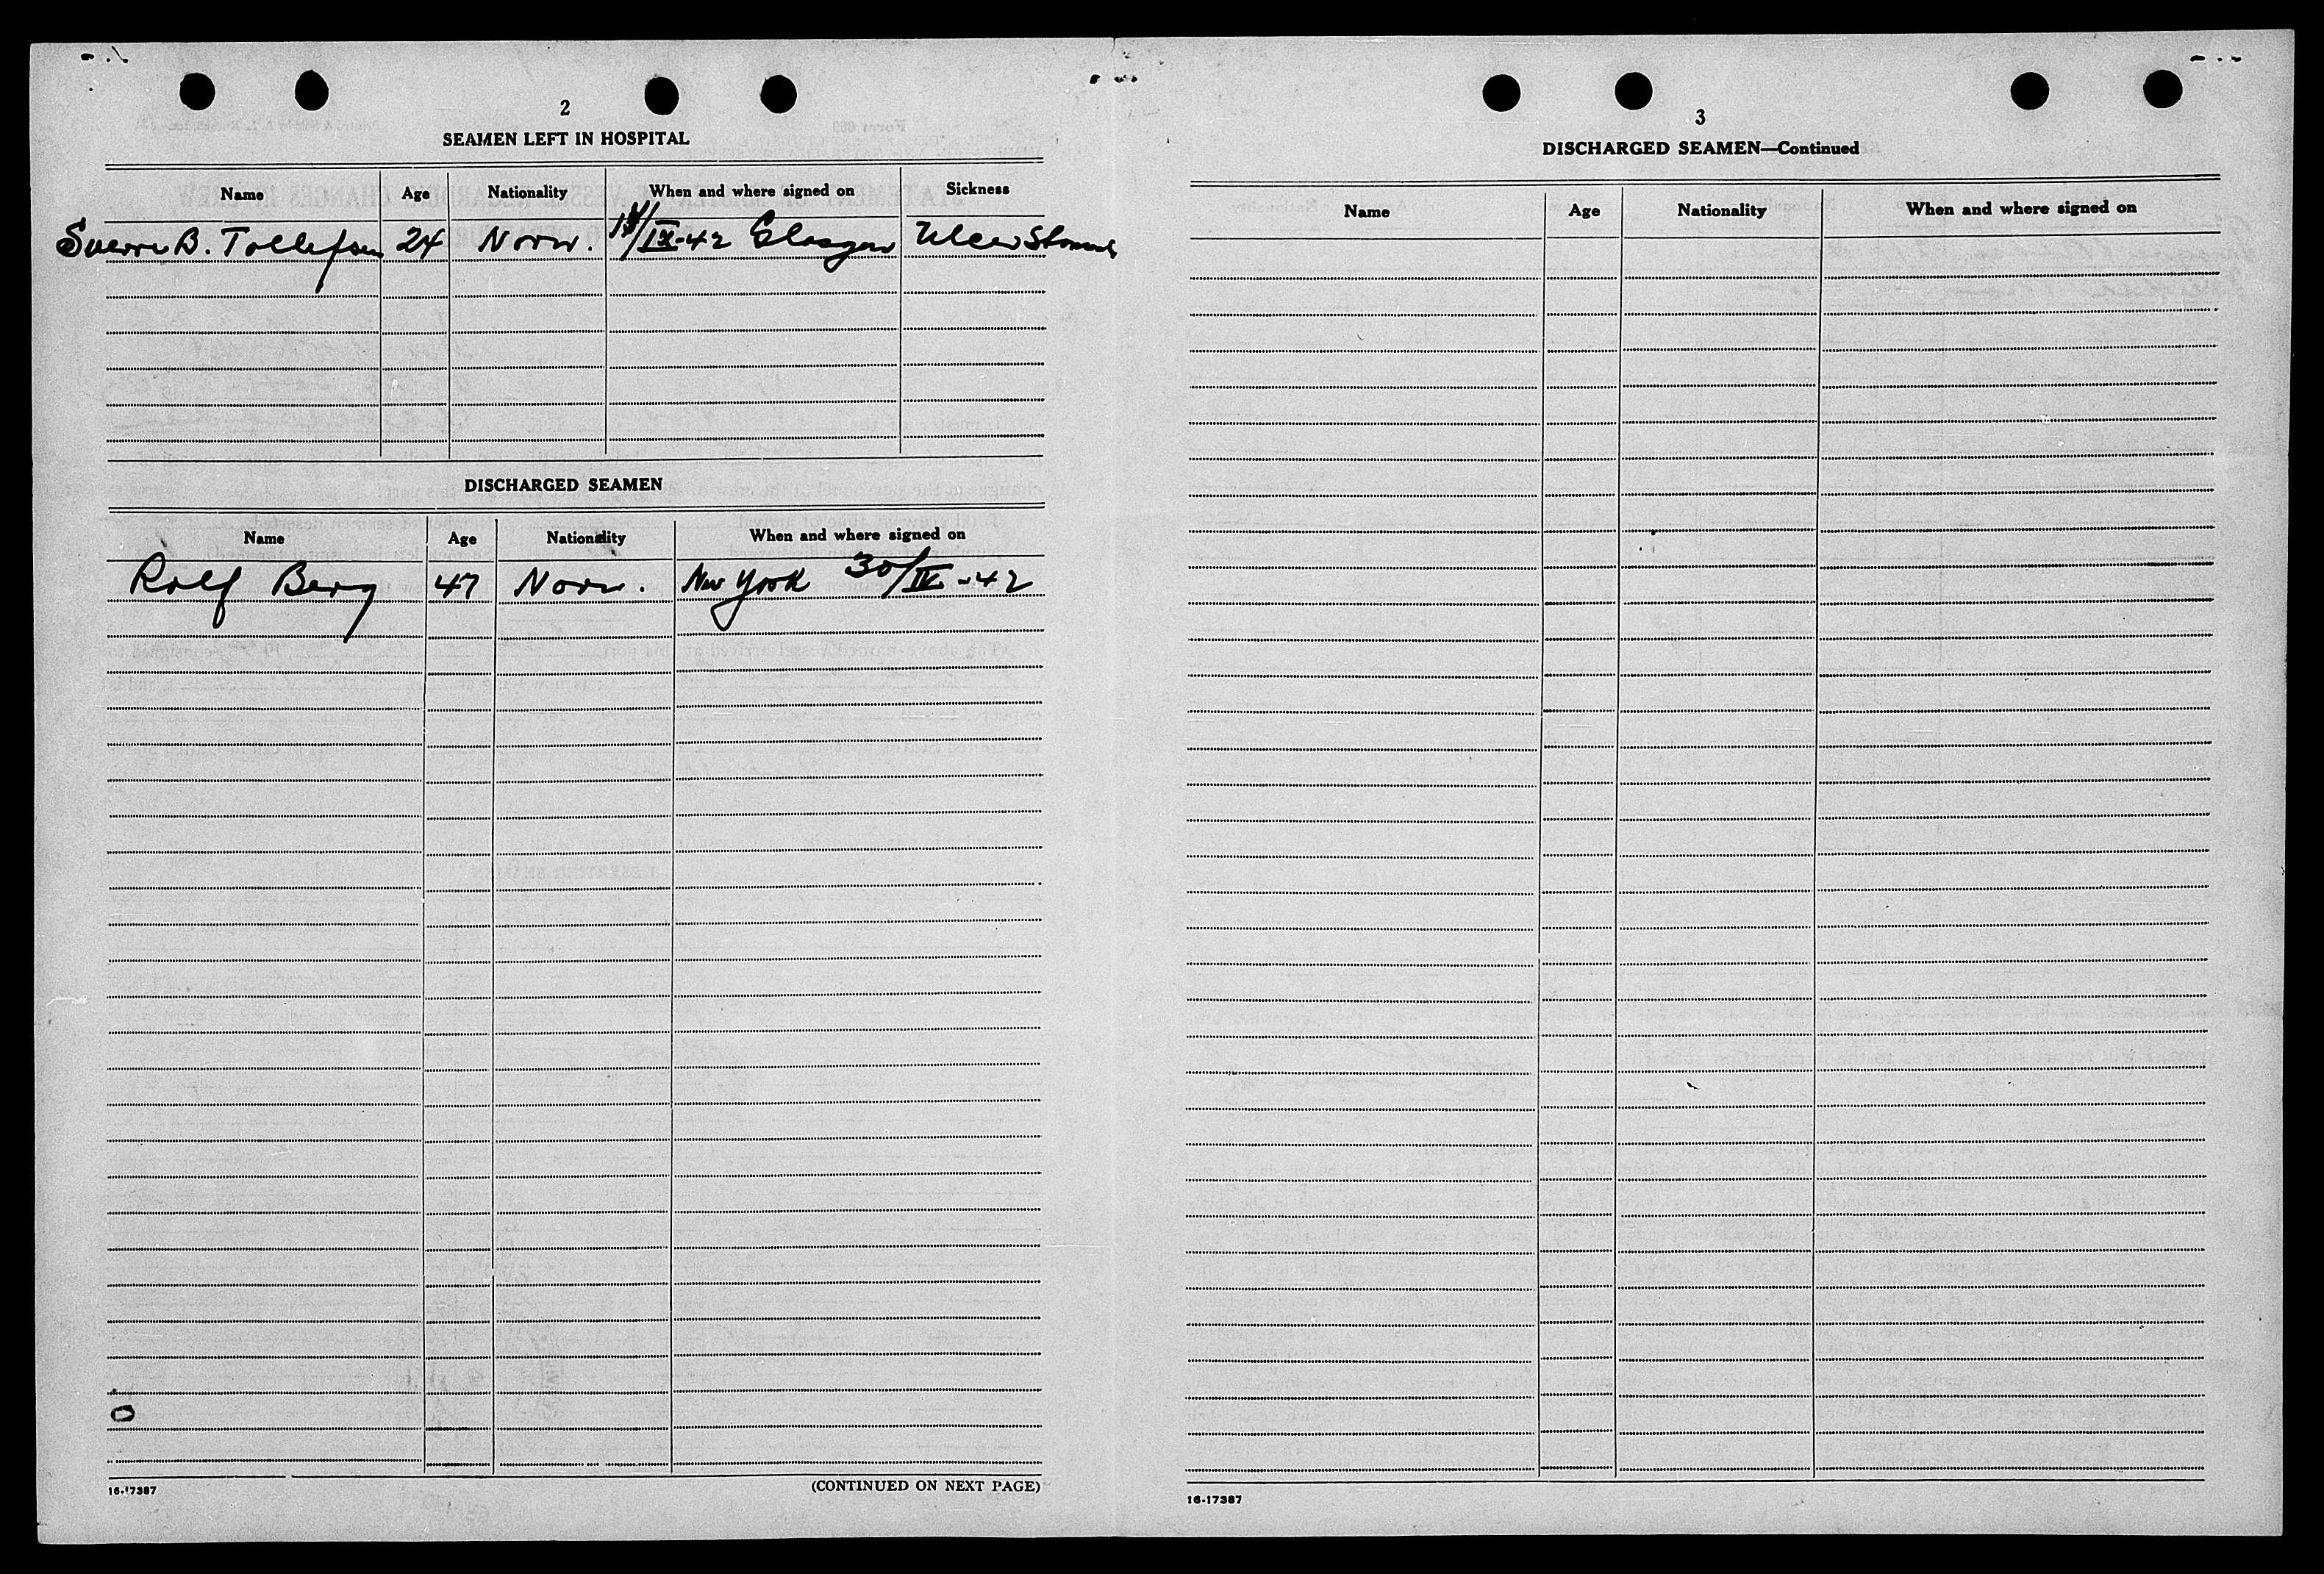 2
SEAMEN LEFT IN HOSPITAL
Name Age Nationality When and where signed on Sickness
Sverre B. Tollefsen 24 Norw. /IX-42 Glasgow Ulcer Stomach
DISCHARGED SEAMEN
Name Age Nationality When and where signed on
Rolf Berg 47 Norw. New York 30/IV-42
16-17387 (CONTINUED ON NEXT PAGE)
3
DISCHARGED SEAMEN—Continued
Name Age Nationality When and where signed on
16-17387